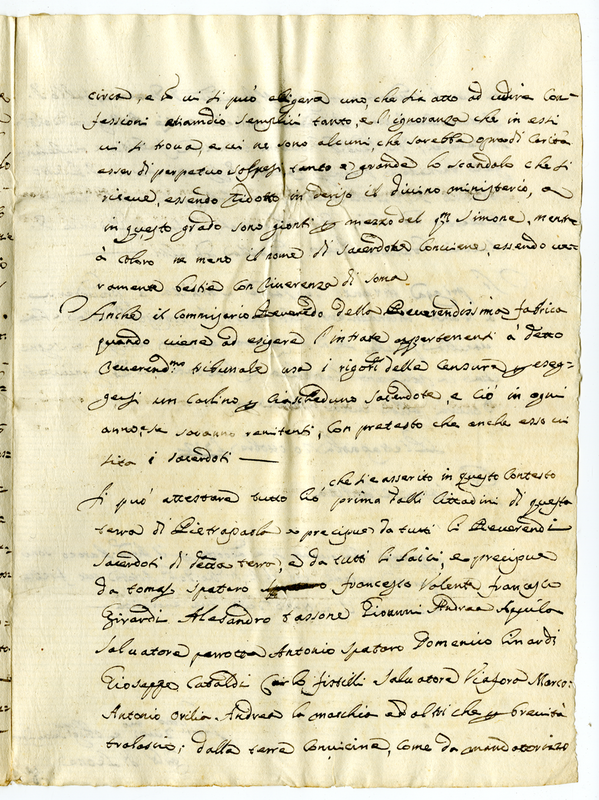 circa, e tra cui si può eligere uno, che sia atto ad udire con-
fessioni etiamdio semplici tanto, e l'ignoranza che in essi
vi si trova e vi ne sono alcuni, che sarebbe opra di Carità
esser di perpetuo sospesi tanto e grande lo scandalo che si
riceve, essendo ridotto in deriso il divino ministerio, e
in questo grado sono gionti p mezzo del Simone, mentre
à coloro ne meno il nome di sacerdote conviene, essendo ve-
ramente bestie con riverenza di soma
Anche il commissario Reverendo della Reverendissima fabrica
quando viene ad esigere l'intrate appartenenti à detto
Reverend.mo tribunale usa i rigori delle Censura p esig-
gersi un Carlino p ciascheduno sacerdote, e ciò in ogni
anno, se saranno renitenti, con pretesto che anche esso vi
sita i sacerdoti —
che si è asserito in questo contesto
Si può attestare tutto ciò prima dalli Cittadini di questa
terra di Pietrapaola e precipue da tutti li Reverendi
sacerdoti di detta terra, e da tutti li laici, e precipue
da tomas spataro francesco Valente francesco
Girardi Alesandro tassone Gioanni Andrea
salvatore perrotta Antonio spataro Domenico linardi
Gioseppe Cataldi Carlo salvatore Viafora Marco:
Antonio Orilia Andrea la maschia ed altri che p brevità
tralascio; dalla terre Convicine, come da mandatorizzo